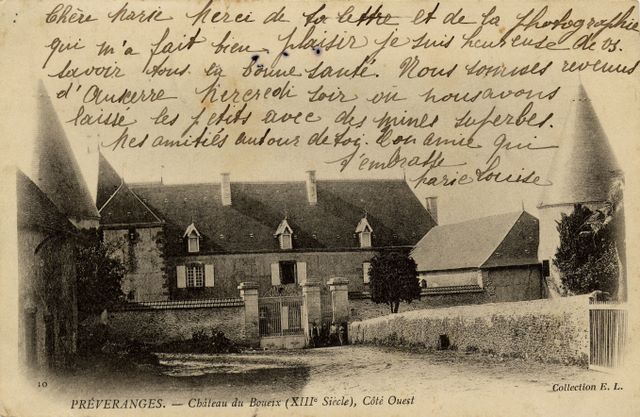 Chère Marie Merci de ta lettre et de la photographie
qui m'a fait bien plaisir je suis heureuse de vs.
savoir tous en bonne santé. Nous sommes revenus
d'Auxerre Mercredi soir où nous avons
laissé les petits avec des mines superbes.
Mes amitiés autour de toi. Ton amie qui
t'embrasse
Marie Louise
10
PRÉVERANGES. — Château du Boueix (XIIIe Siècle), Côté Ouest
Collection E. L.